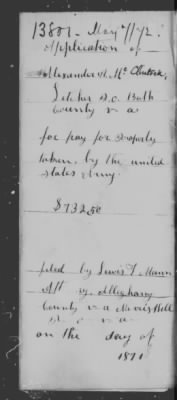 13807. May 7/72.
Application of
Alexander A. McClintock,
Letcher P.O. Bath
County v a
for pay for Property
taken by the united
states army.
$732 50
filed by Lewis T. Mann
Att y. Alleghany
County v a Morris Hill
P. O. v a
on the day of
1871